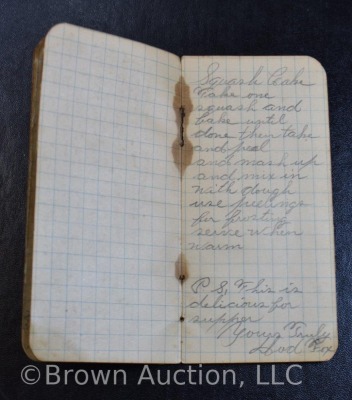 Squash Cake
Take one
squash and
bake until
done then take
and peel
and mash up
and mix in
with dough
use peelings
for frosting
serve when
warm
P S, This is
delicious for
supper
Yours Truly
Fox
©Brown Auction, LLC